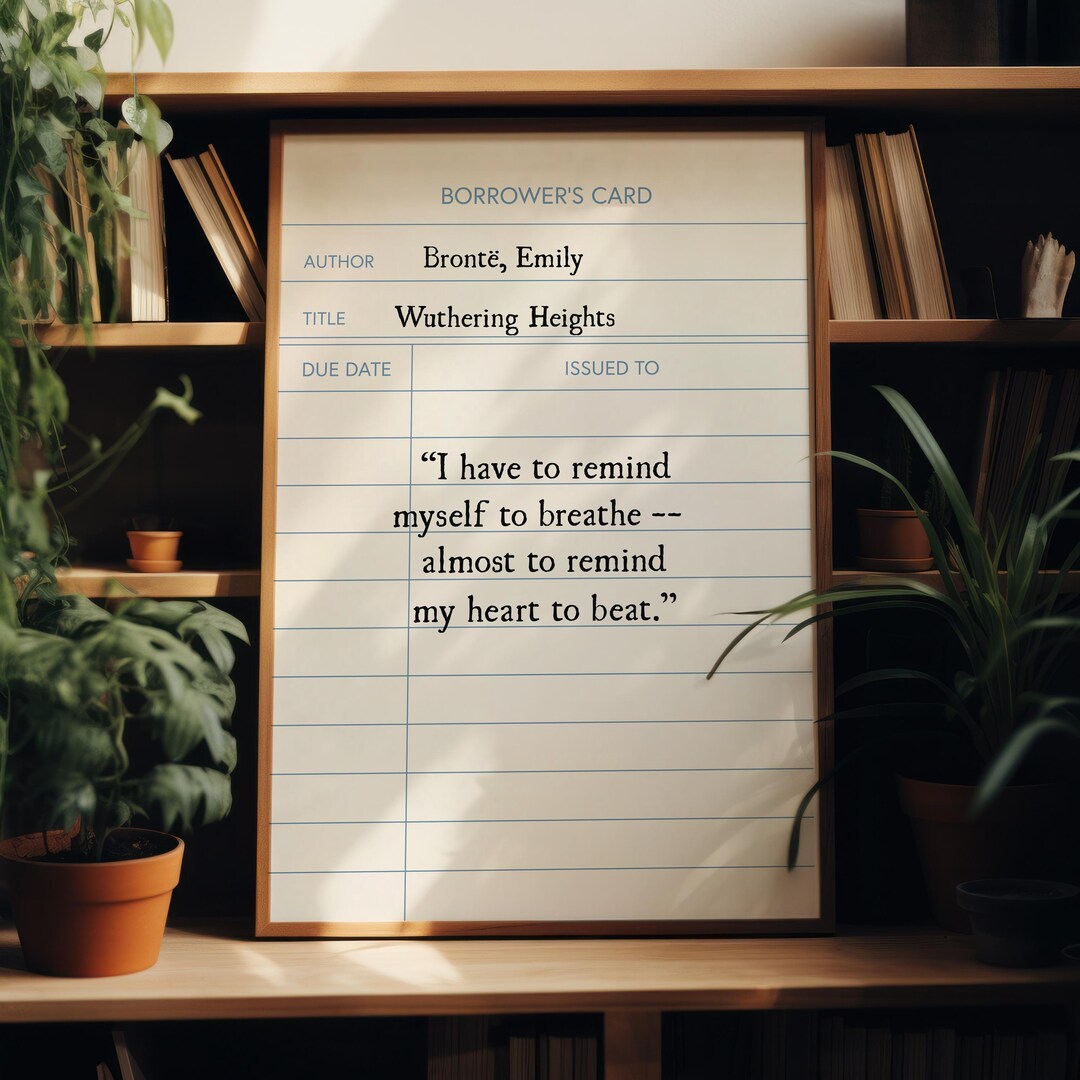 BORROWER'S CARD
AUTHOR Brontë, Emily
TITLE Wuthering Heights
DUE DATE ISSUED TO
“I have to remind
myself to breathe --
almost to remind
my heart to beat.”